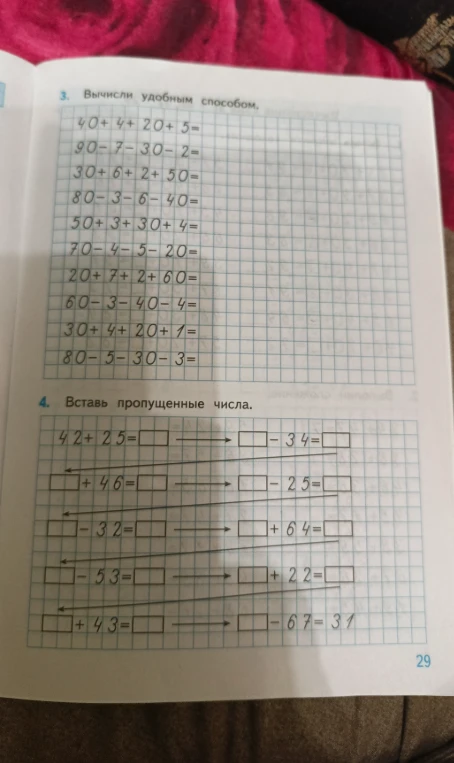 3. Вычисли удобным способом.
40+ 4+ 20+ 5=
90− 7− 30− 2=
30+ 6+ 2+ 50=
80− 3− 6− 40=
50+ 3+ 30+ 4=
70− 4− 5− 20=
20+ 7+ 2+ 60=
60− 3− 40− 4=
30+ 4+ 20+ 1=
80− 5− 30− 3=
4. Вставь пропущенные числа.
42+ 25=□ → □− 34=□
□+ 46=□ → □− 25=□
□− 32=□ → □+ 64=□
□− 53=□ → □+ 22=□
□+ 43=□ → □− 67= 31
29